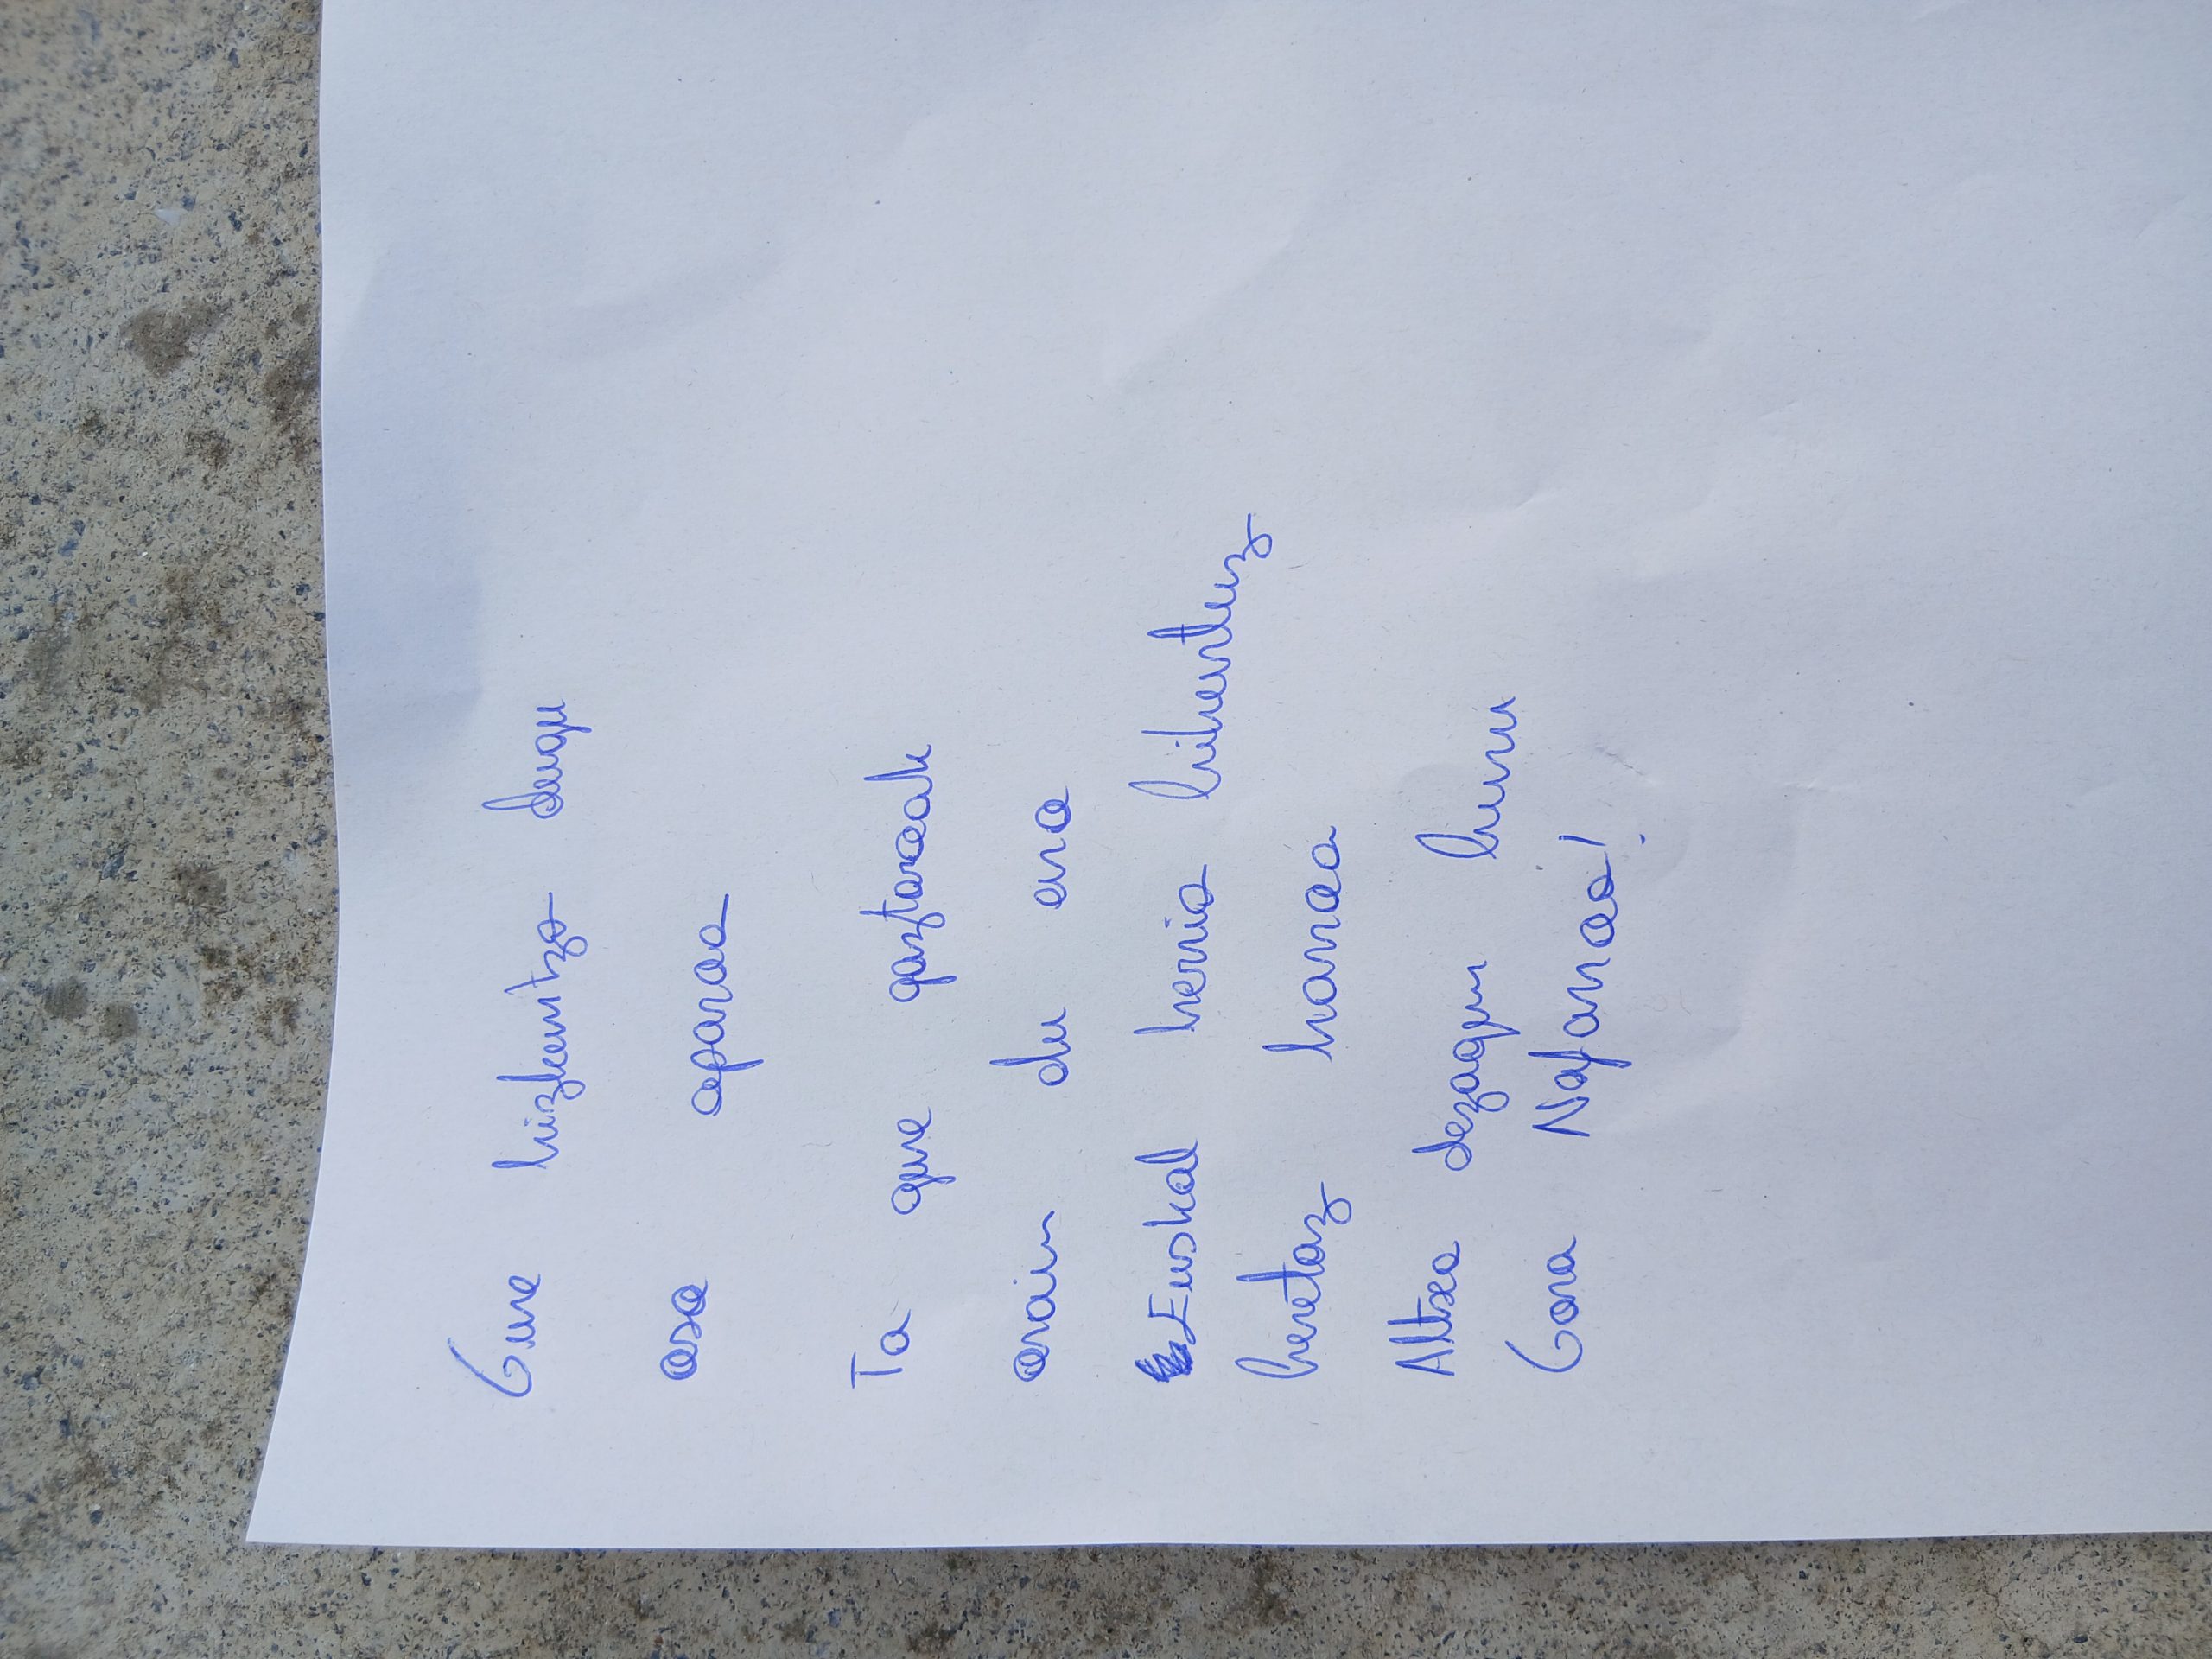 Gure hizkuntza dugu
oso oparoa
Ta gure gaztaroak
orain du era
Euskal herria bihurtuz
beretaz harroa
Altxa dezagun buru
Gora Nafarroa!